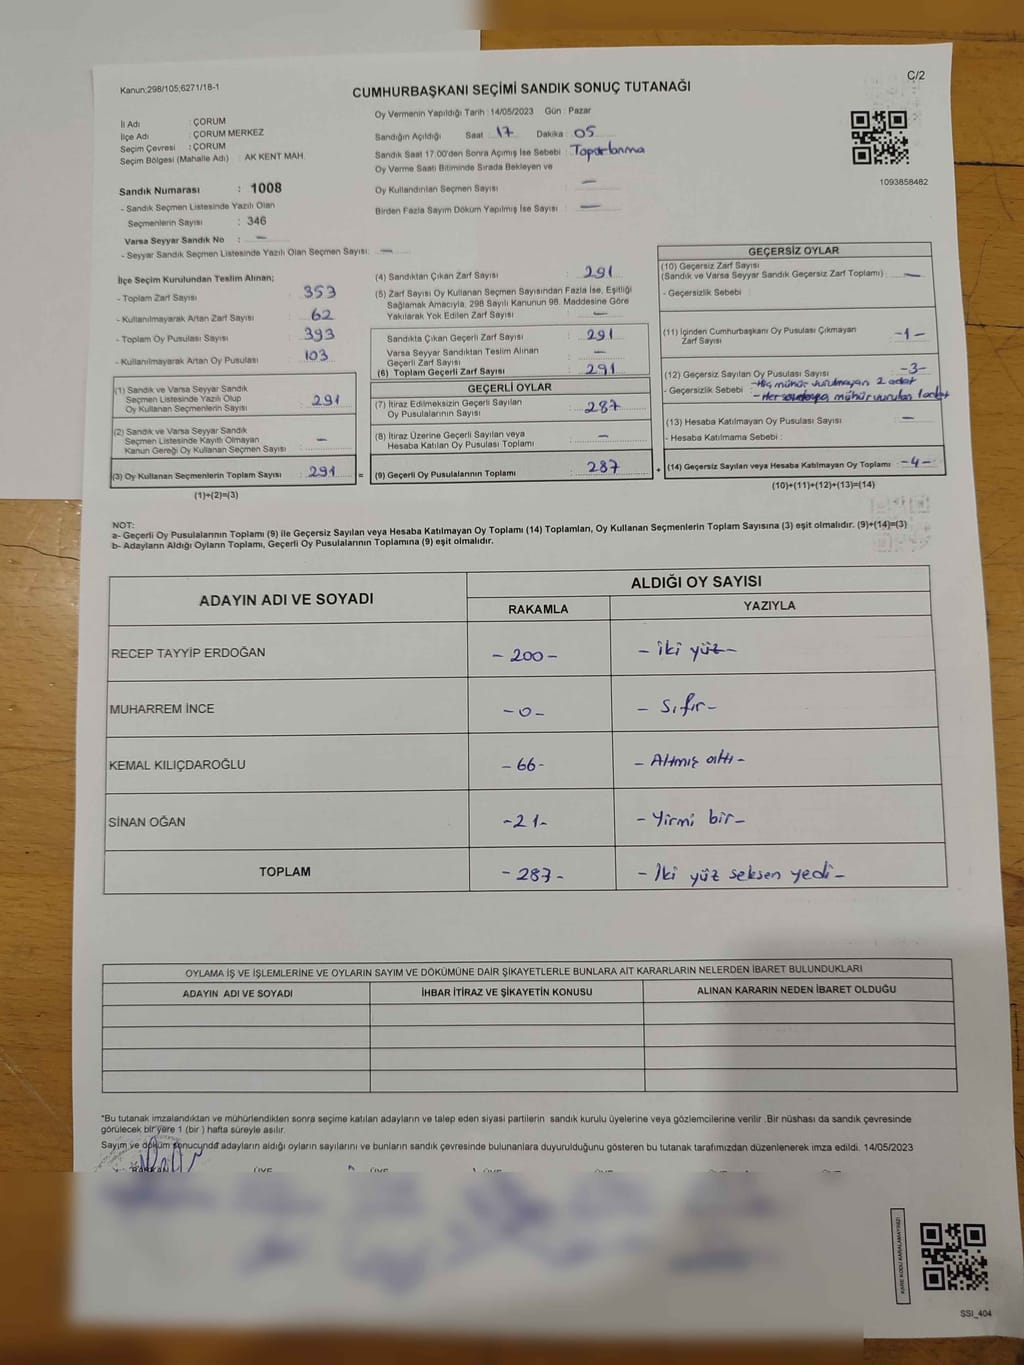 Kanun;298/105;6271/18-1
C/2
CUMHURBAŞKANI SEÇİMİ SANDIK SONUÇ TUTANAĞI
İl Adı : ÇORUM
İlçe Adı : ÇORUM MERKEZ
Seçim Çevresi : ÇORUM
Seçim Bölgesi (Mahalle Adı) : AK KENT MAH.
Sandık Numarası : 1008
- Sandık Seçmen Listesinde Yazılı Olan
Seçmenlerin Sayısı : 346
Varsa Seyyar Sandık No : —
- Seyyar Sandık Listesinde Yazılı Olan Seçmen Sayısı: —
Oy Vermenin Yapıldığı Tarih : 14/05/2023 Gün : Pazar
Sandığın Açıldığı Saat 17 Dakika 05
Sandık Saat 17.00'den Sonra Açımış İse Sebebi : Toparlanma
Oy Verme Saati Bitiminde Sırada Bekleyen ve
Oy Kullandırılan Seçmen Sayısı : —
Birden Fazla Sayım Döküm Yapılmış İse Sayısı : —
1093858482
İlçe Seçim Kurulundan Teslim Alınan;
- Toplam Zarf Sayısı : 353
- Kullanılmayarak Artan Zarf Sayısı : 62
- Toplam Oy Pusulası Sayısı : 393
- Kullanılmayarak Artan Oy Pusulası : 103
(1) Sandık ve Varsa Seyyar Sandık
Seçmen Listesinde Yazılı Olup
Oy Kullanan Seçmenlerin Sayısı : 291
(2) Sandık ve Varsa Seyyar Sandık
Seçmen Listesinde Kayıtlı Olmayan
Kanun Gereği Oy Kullanan Seçmen Sayısı : —
(3) Oy Kullanan Seçmenlerin Toplam Sayısı : 291 =
(1)+(2)=(3)
(4) Sandıktan Çıkan Zarf Sayısı : 291
(5) Zarf Sayısı Oy Kullanan Seçmen Sayısından Fazla İse, Eşitliği
Sağlamak Amacıyla, 298 Sayılı Kanunun 98. Maddesine Göre
Yakılarak Yok Edilen Zarf Sayısı : —
Sandıkta Çıkan Geçerli Zarf Sayısı : 291
Varsa Seyyar Sandıktan Teslim Alınan
Geçerli Zarf Sayısı : —
(6) Toplam Geçerli Zarf Sayısı : 291
GEÇERLİ OYLAR
(7) İtiraz Edilmeksizin Geçerli Sayılan
Oy Pusulalarının Sayısı : 287
(8) İtiraz Üzerine Geçerli Sayılan veya
Hesaba Katılan Oy Pusulası Toplamı : —
(9) Geçerli Oy Pusulalarının Toplamı : 287 +
GEÇERSİZ OYLAR
(10) Geçersiz Zarf Sayısı
(Sandık ve Varsa Seyyar Sandık Geçersiz Zarf Toplamı) : —
- Geçersizlik Sebebi :
(11) İçinden Cumhurbaşkanı Oy Pusulası Çıkmayan
Zarf Sayısı : -1-
(12) Geçersiz Sayılan Oy Pusulası Sayısı : -3-
- Geçersizlik Sebebi : -Hiç mühür vurulmayan 2 adet
mühür vurulan 1 adet
(13) Hesaba Katılmayan Oy Pusulası Sayısı : —
- Hesaba Katılmama Sebebi :
(14) Geçersiz Sayılan veya Hesaba Katılmayan Oy Toplamı : -4-
(10)+(11)+(12)+(13)=(14)
NOT:
a- Geçerli Oy Pusulalarının Toplamı (9) ile Geçersiz Sayılan veya Hesaba Katılmayan Oy Toplamı (14) Toplamları, Oy Kullanan Seçmenlerin Toplam Sayısına (3) eşit olmalıdır. (9)+(14)=(3)
b- Adayların Aldığı Oyların Toplamı, Geçerli Oy Pusulalarının Toplamına (9) eşit olmalıdır.
ADAYIN ADI VE SOYADI
ALDIĞI OY SAYISI
RAKAMLA YAZIYLA
RECEP TAYYİP ERDOĞAN - 200 - - iki yüz -
MUHARREM İNCE - 0 - - Sıfır -
KEMAL KILIÇDAROĞLU - 66 - - Altmış altı -
SİNAN OĞAN - 21 - - Yirmi bir -
TOPLAM - 287 - - İki yüz seksen yedi -
OYLAMA İŞ VE İŞLEMLERİNE VE OYLARIN SAYIM VE DÖKÜMÜNE DAİR ŞİKAYETLERLE BUNLARA AİT KARARLARIN NELERDEN İBARET BULUNDUKLARI
ADAYIN ADI VE SOYADI İHBAR İTİRAZ VE ŞİKAYETİN KONUSU ALINAN KARARIN NEDEN İBARET OLDUĞU
*Bu tutanak imzalandıktan ve mühürlendikten sonra seçime katılan adayların ve talep eden siyasi partilerin sandık kurulu üyelerine veya gözlemcilerine verilir .Bir nüshası da sandık çevresinde
görülecek bir yere 1 (bir ) hafta süreyle asılır.
Sayım ve döküm sonucunda adayların aldığı oyların sayılarını ve bunların sandık çevresinde bulunanlara duyurulduğunu gösteren bu tutanak tarafımızdan düzenlenerek imza edildi. 14/05/2023
BAŞKAN ÜYE ÜYE ÜYE ÜYE
KARE KODU KARALAMAYINIZ!
SSI_404